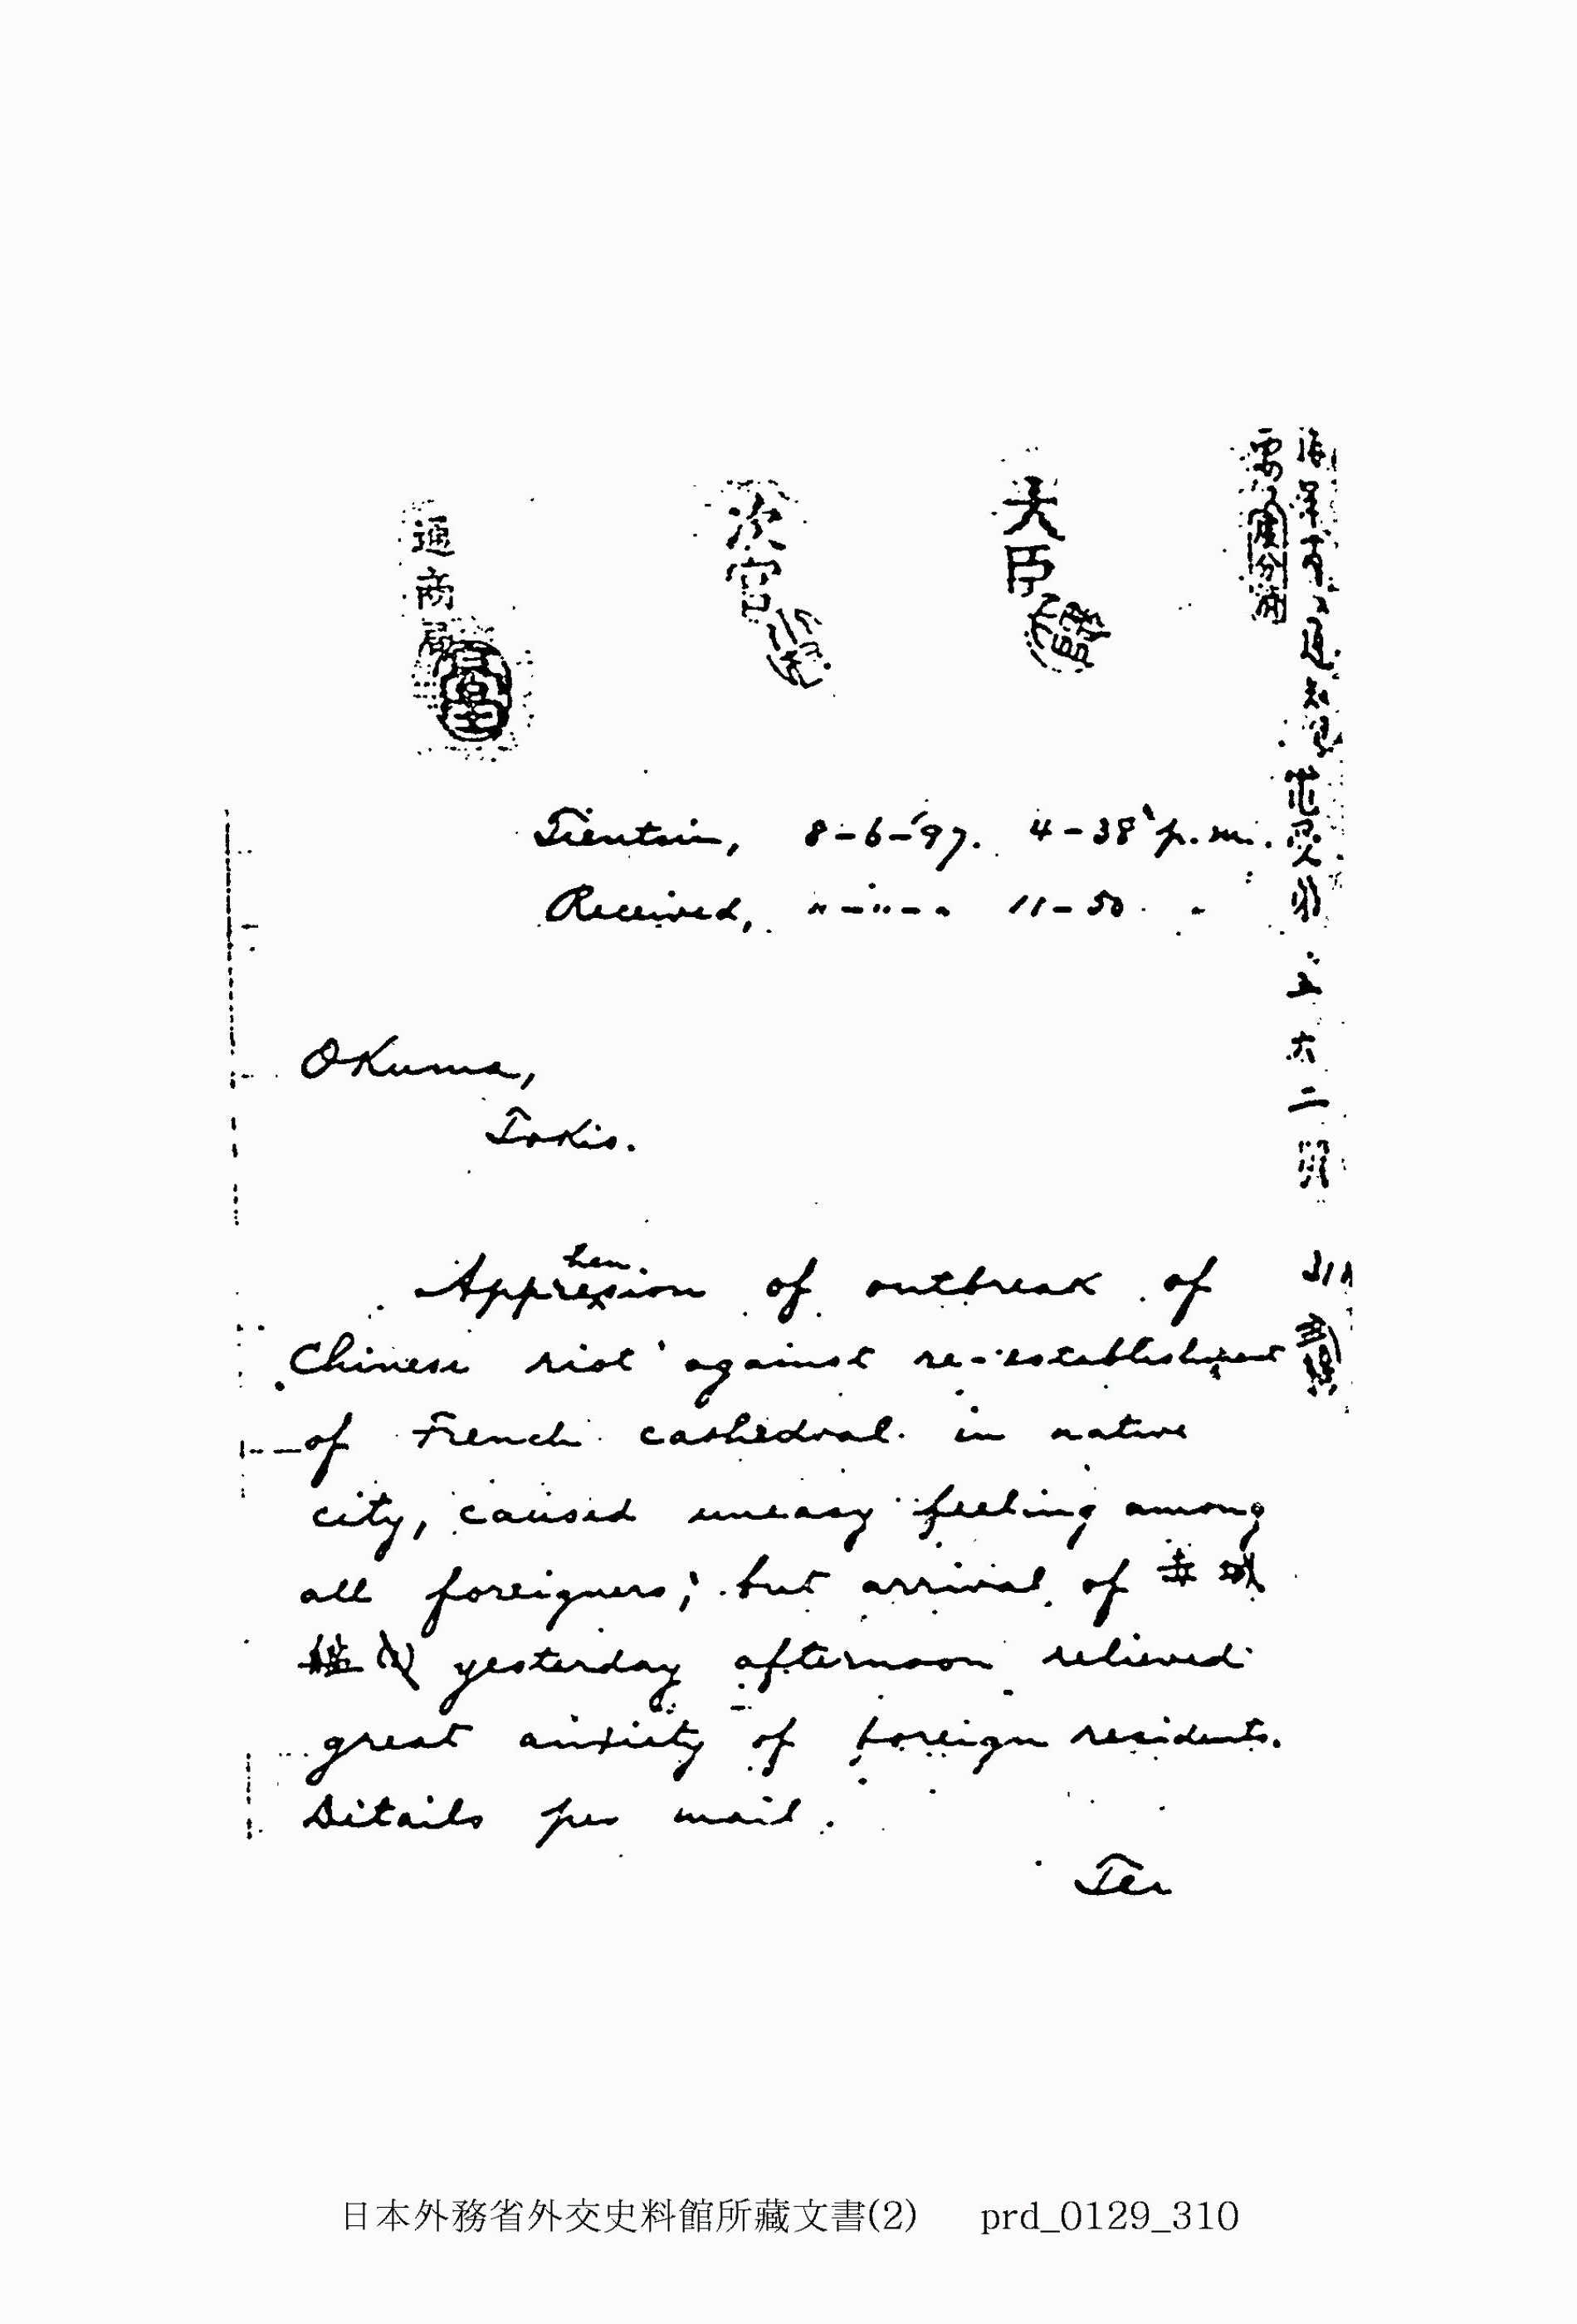 大臣
次官
通商局
五六二
Tientsin, 8-6-'97. 4-38 p.m.
Received, "-"-" 11-50 "
Okuma,
Tokio.
Apprehension of outbreak of
Chinese riot against re-establishment
of French cathedral in native
city, caused uneasy feeling among
all foreigners; but arrival of
yesterday afternoon relieved
great anxiety of foreign residents.
Details per mail.
Tei
日本外務省外交史料館所藏文書(2) prd_0129_310